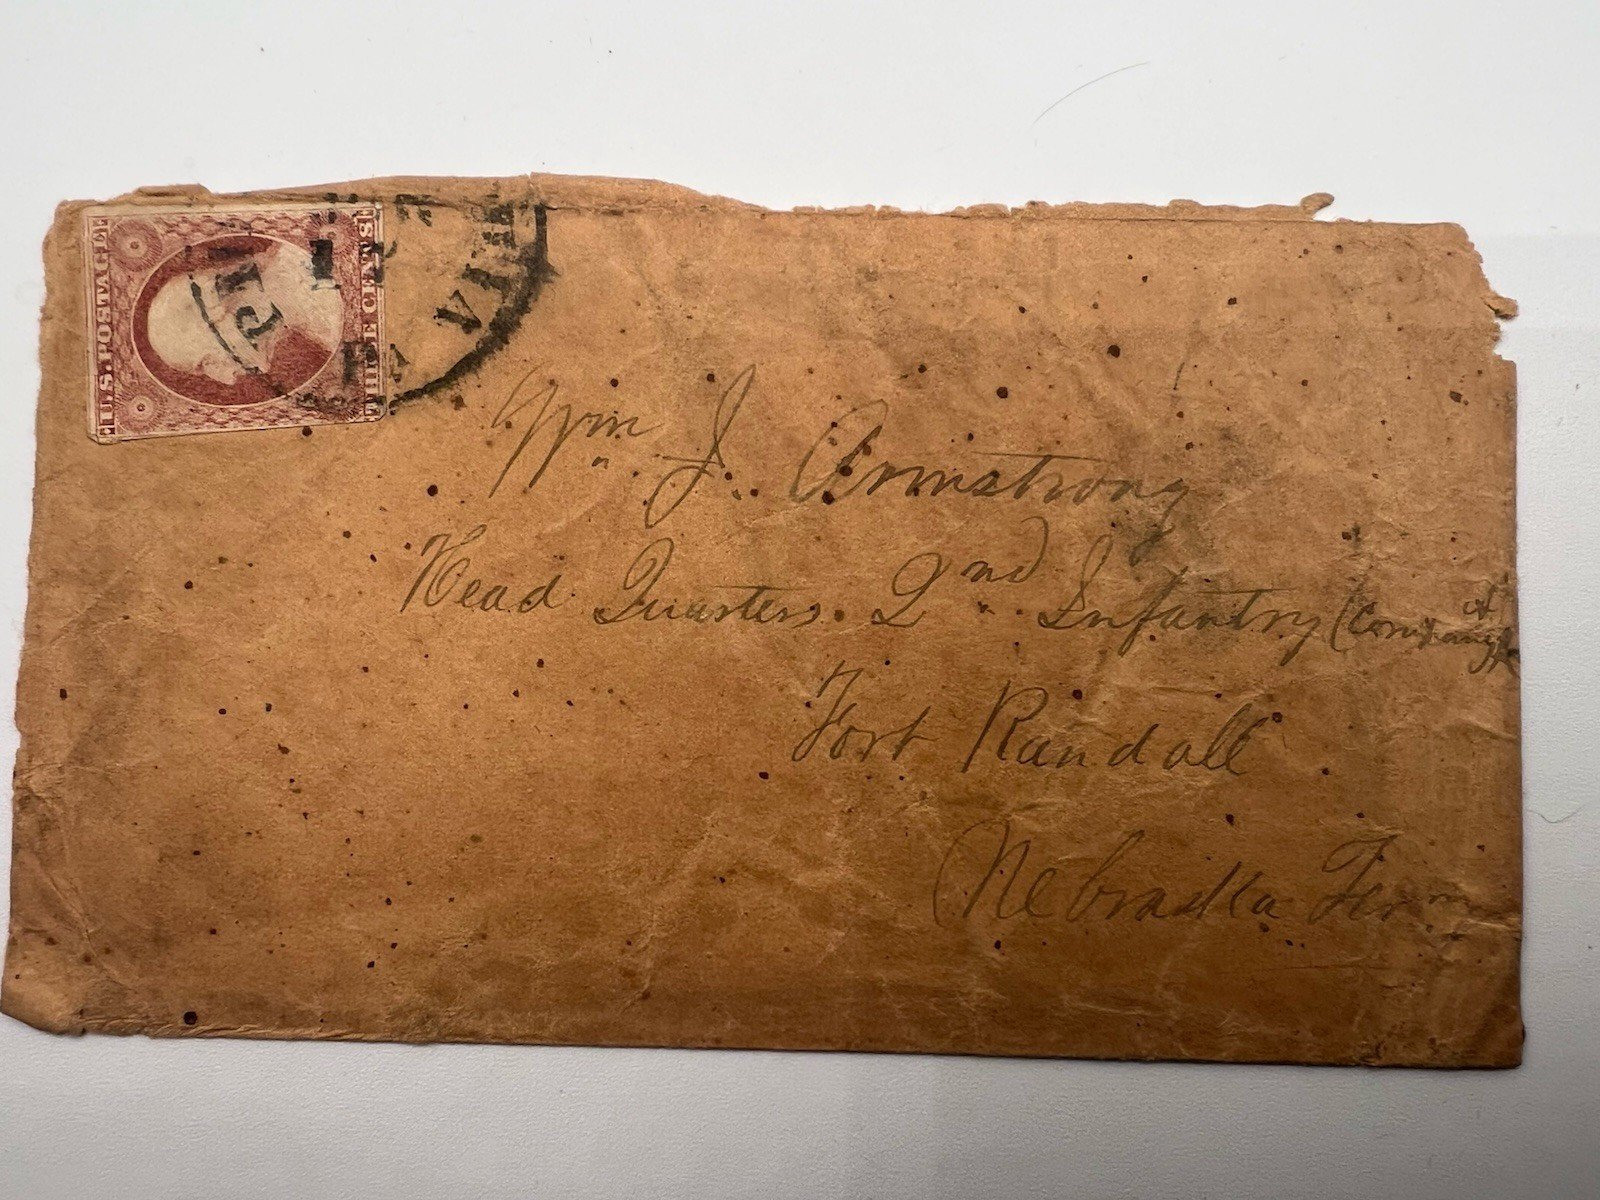 U.S. POSTAGE
THREE CENTS
Wm J. Armstrong
Head Quarters. 2nd Infantry (Company
Fort Randall
Nebraska Terr